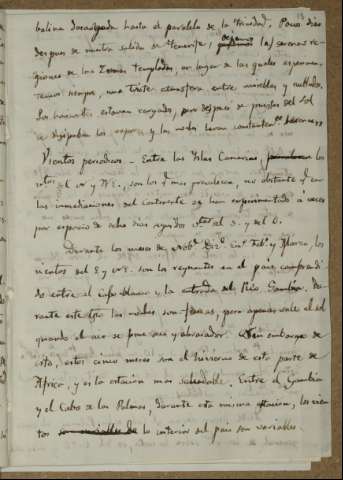 balina desconfada hasta el paralelo de la Trinidad. Pocos dias
despues de nuestra salida de Tenerife, las serenas re-
giones de las Zonas Templadas, en lugar de las quales experimen-
tamos siempre, una triste atmosfera entre morellos y nublados.
Los horizontes estaban cargados, pero despues de puestos del Sol
se disipaban los vapores y las noches heran constantemte serenas 
Vientos periodicos. Entre las Yslas Canarias, los
vientos al N. y NE. son los q.e mas prevalecen, no obstante q.e en
las inmediaciones del Continente se han experimentado á veces
por espacio de ocho dias seguidos vtos al S. y del O.
Durante los meses de Nobe. Dize. Eno. Feb.o y Marzo, los
vientos del E y NE. son los reynantes en el pais comprendi-
do entre el Cabo blanco y la entrada del Rio Gambia. Du-
rante este tpo las noches son frescas, pero apenas sale el sol
quando el aire se pone seco y abrasador. Sin embargo de
esto, estos cinco meses son el hivierno de esta parte de
Africa, y es la estacion mas saludable. Entre el Gambia
y el Cabo de las Palmas, durante esta misma estacion, los vien-
tos en lo interior del pais son variables.